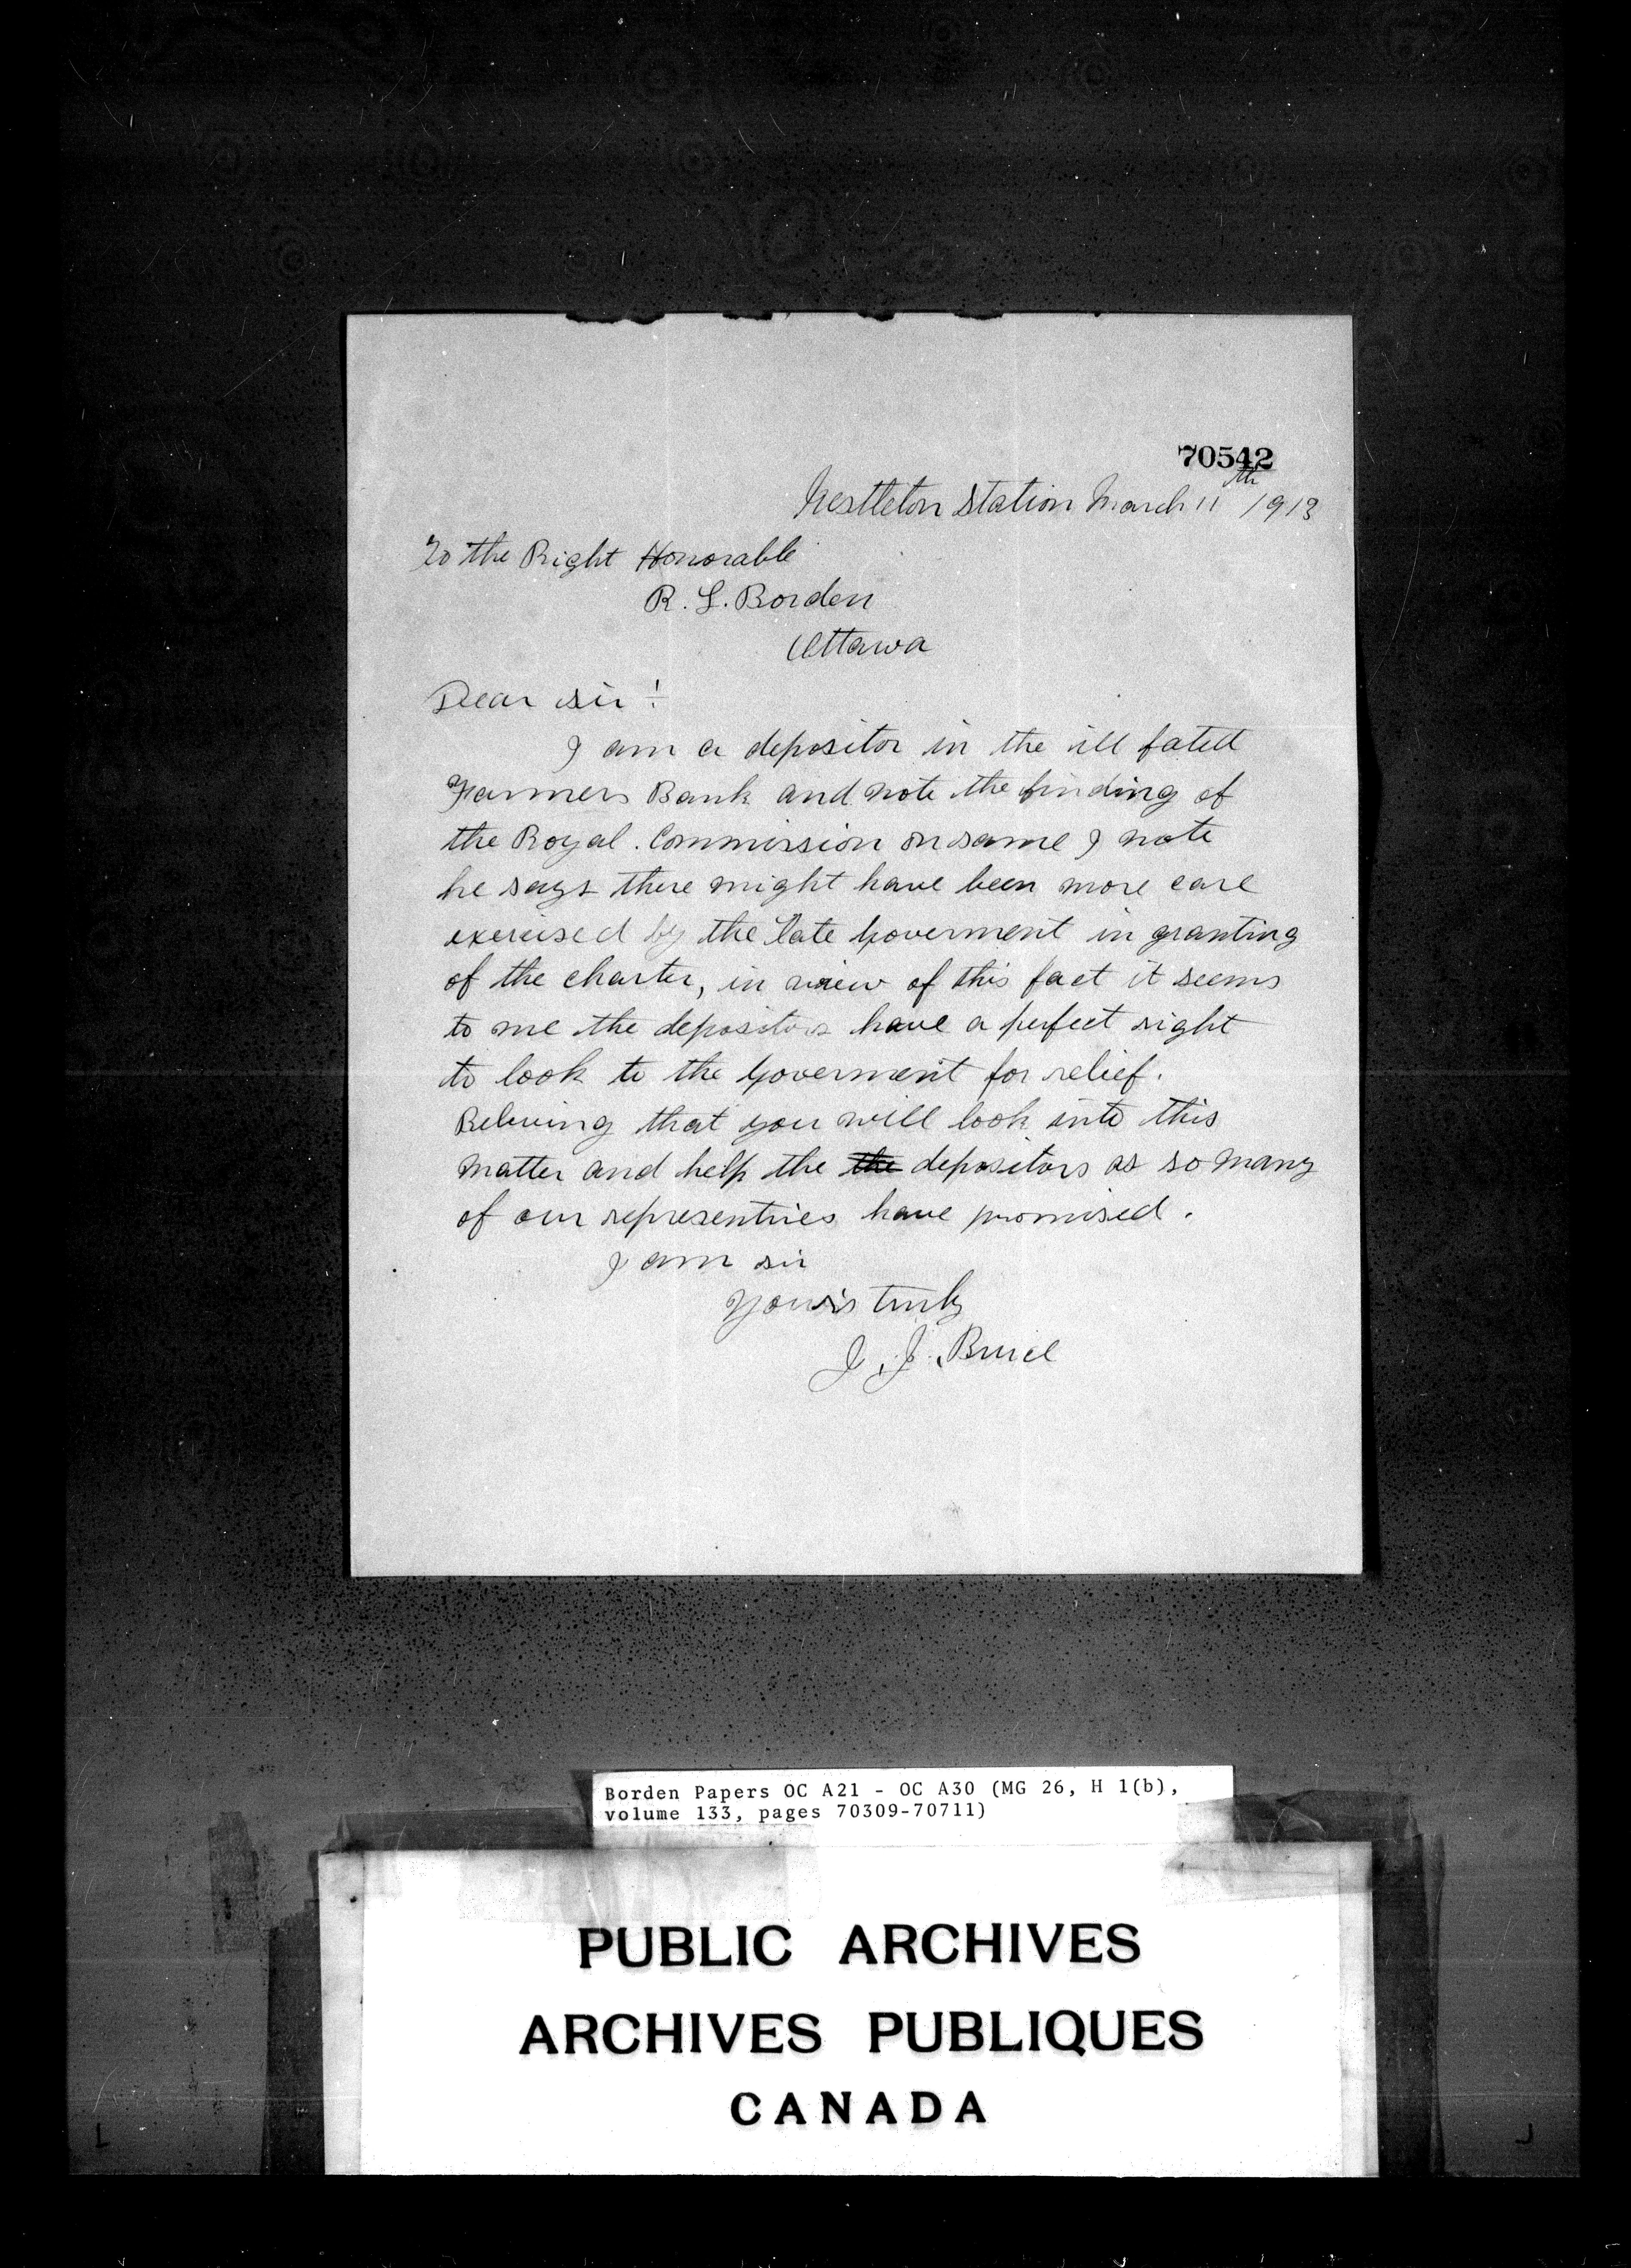 70542
Nestleton Station March 11th 1913
To the Right Honorable
R. L. Borden
Ottawa
Dear sir!
I am a depositor in the ill fated
Farmers Bank and note the finding of
the Royal. Commission on same I note
he says there might have been more care
exercised by the late Goverment in granting
of the charter, in view of this fact it seems
to me the depositors have a perfect right
to look to the Goverment for relief.
Beleving that you will look into this
matter and help the the depositors as so many
of our representives have promised.
I am sir
Yours truly
J. J. Bruce
Borden Papers OC A21 - OC A30 (MG 26, H 1(b),
volume 133, pages 70309-70711)
PUBLIC ARCHIVES
ARCHIVES PUBLIQUES
CANADA